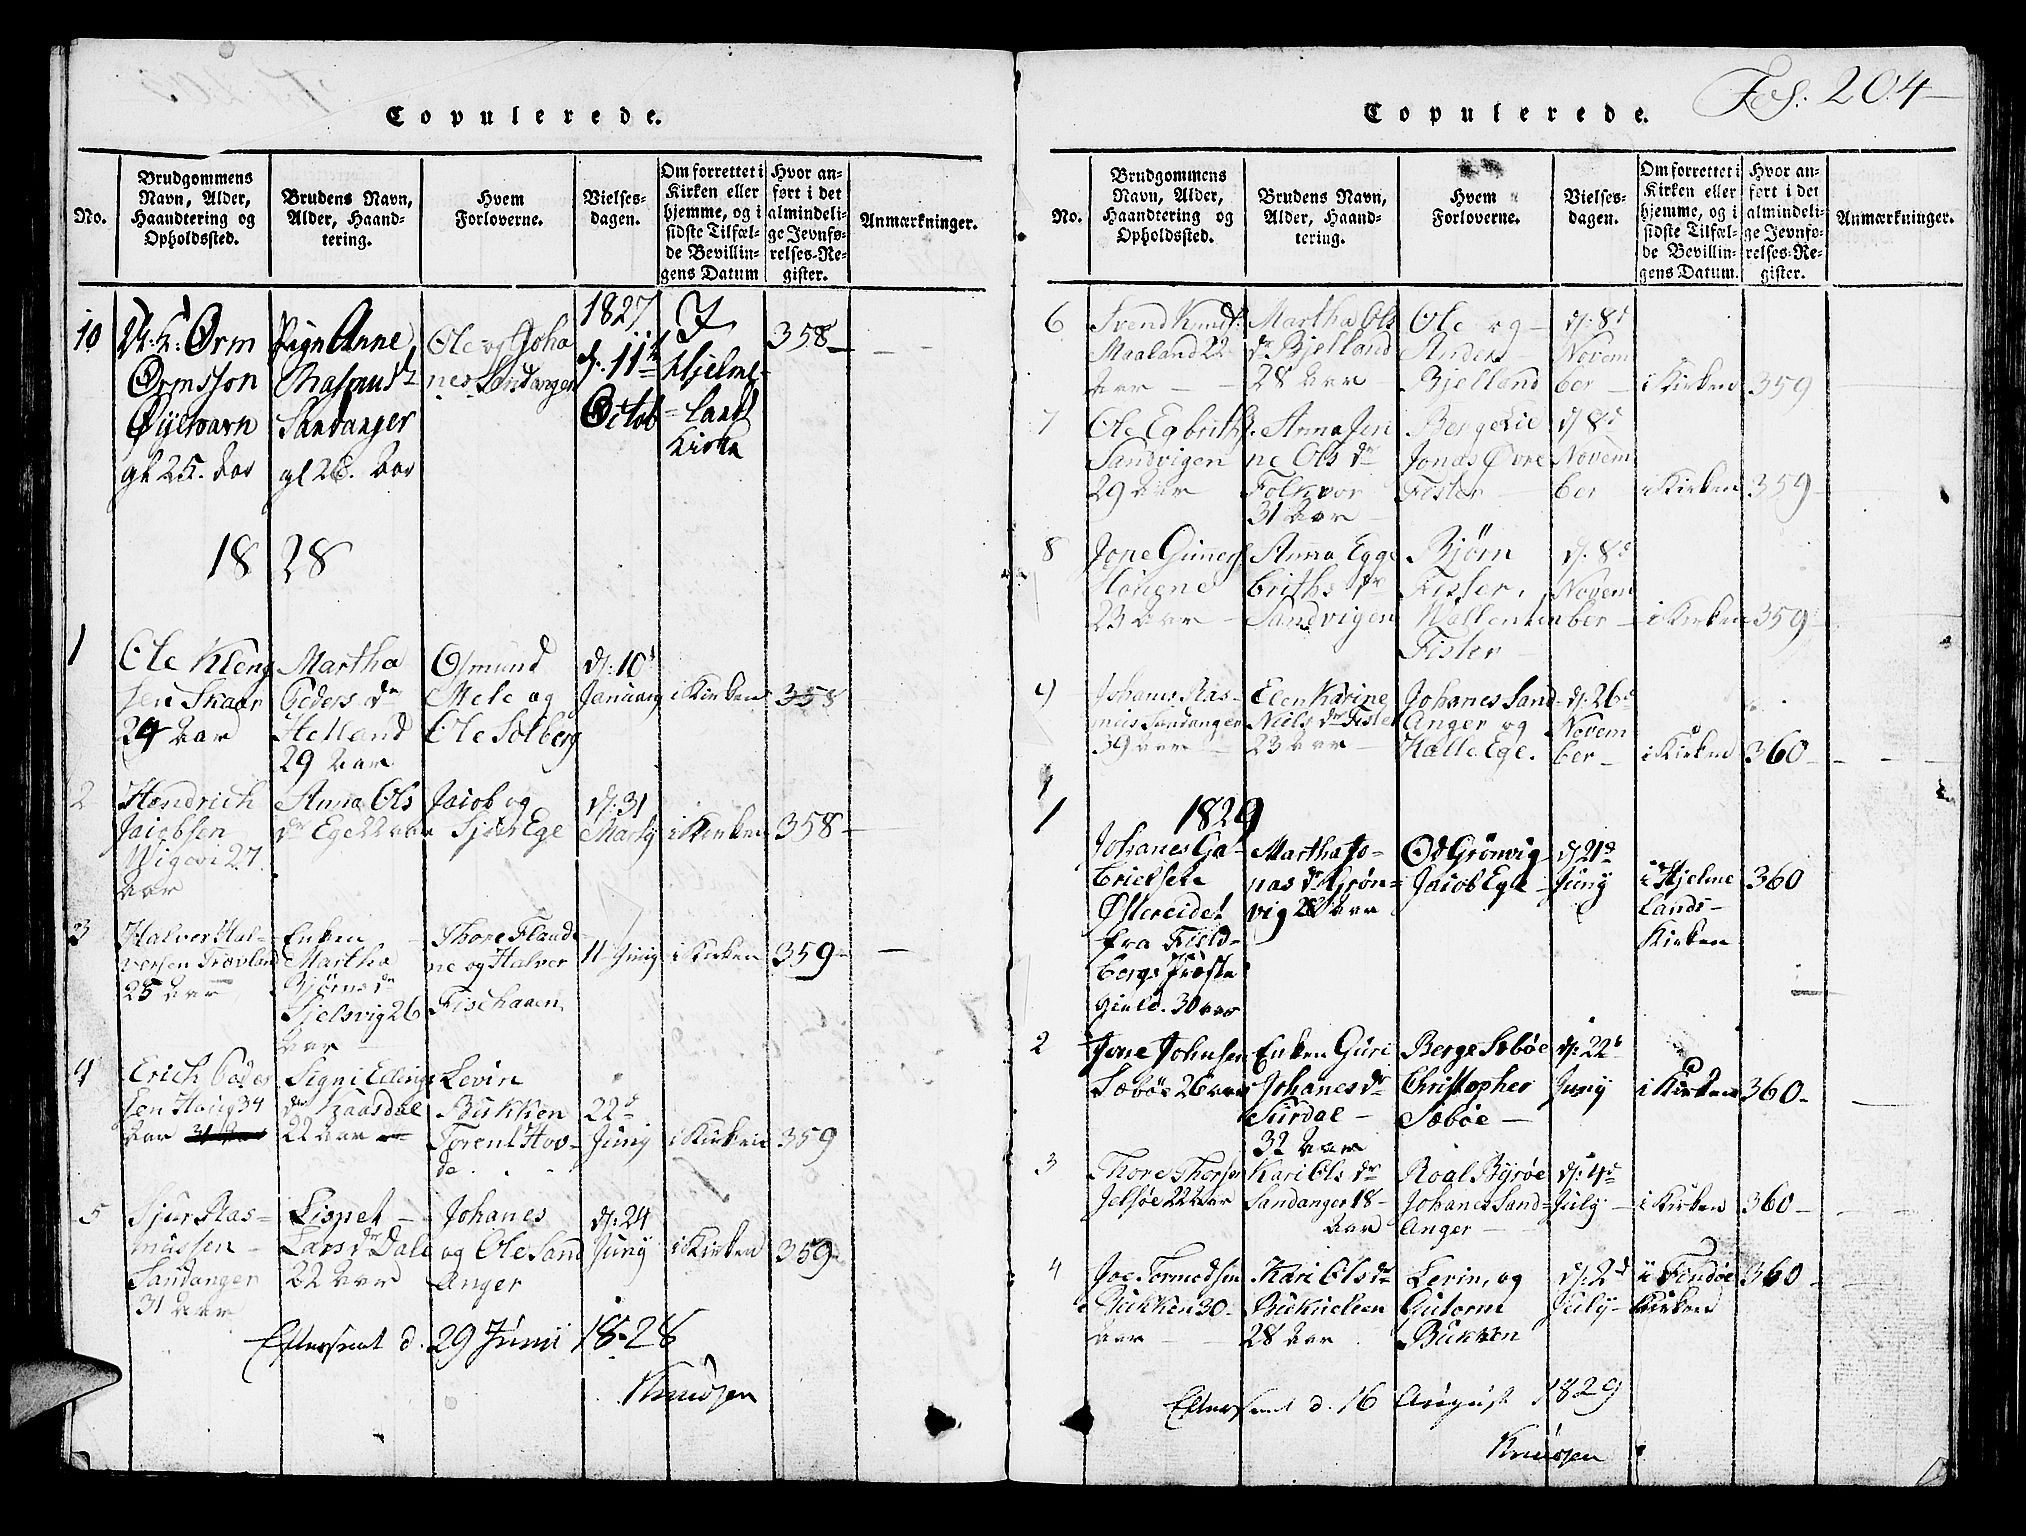 Copulerede.
No.
Brudgommens
Navn, Alder,
Haandtering og
Opholdssted.
Brudens Navn,
Alder, Haand-
tering.
Hvem
Forloverne.
Vielses-
dagen.
Om forrettet i
Kirken eller
hjemme, og i
sidste Tilfæl-
de Bevillin-
gens Datum
Hvor an-
ført i det
almindeli-
ge Jevnfø-
relses-Re-
gister.
Anmærkninger.
10
Orm
Ormsson
gl 25. Aar
Pign Anne
Rasmusd
Sandanger
gl 26. Aar
Ole og Joha
nes Sandanger
1827
d. 11te
Octob
I
Hjelme-
land
Kirke
358
1828
1
Ole Kleng
sen Skaar
24 Aar
Martha
Peders dr
Helland
29 Aar
Osmund
Mele og
Ole Solberg
d. 10d
January
i Kirken
358
2
Hendrich
Jacobsen
27
Aar
Anna Ols
dr Ege 22 aar
Jacob og
Sjur Ege
d. 31
Marty
i Kirken
358
3
Halver Hal-
versen
25 Aar
Enken
Martha
Bjørns dr
26
Aar
Thore
og Halver
11 Juny
i Kirken
359
4
Erich Peder
sen Haug 34
Aar
Signi Ellings
dr
22 Aar
Levin
Bukken
Hov-
de
22d
Juny
i Kirken
359
5
Sjur Ras-
mussen
Sandanger
31 Aar
Lispet
Lars dr Dale
22 Aar
Johanes
og Ole Sand
Anger
d. 24
Juny
i Kirken
359
Efterseet d. 29 Junii 1828
Knudsen
Fol: 204
Copulerede.
No.
Brudgommens
Navn, Alder,
Haandtering og
Opholdssted.
Brudens Navn,
Alder, Haand-
tering.
Hvem
Forloverne.
Vielses-
dagen.
Om forrettet i
Kirken eller
hjemme, og i
sidste Tilfæl-
de Bevillin-
gens Datum.
Hvor an-
ført i det
almindeli-
ge Jevnfø-
relses-Re-
gister.
Anmærkninger.
6
Svend Knuds.
Maaland 22
Aar
Martha Ols
dr Bjelland
28 Aar
Ole og
Anders
Bjelland
d. 8d
Novem
ber
i Kirken
359
7
Ole Egbriths
Sandvigen
29 Aar
Anna Jeri
ne Ols dr
Folkvor
31 Aar
Berge Lie
Jonas Øvre
Fister
d 8d
Novem
ber
i Kirken
359
8
Jone Guners
Hougene
23 Aar
Anna Egge
briths dr
Sandvigen
Bjørn
Fister,
Wallentin
Fister
d. 8d
Novem
ber
i Kirken
359
9
Johanes Ras-
mus Sandanger
39 aar
Elen Karine
Niels dr Fister
23 aar
Johanes Sand-
Anger og
Halle Ege.
d. 26d
Novem
ber
i Kirken
360
1829
1
Johanes Ga-
brielsen
Østereidet
fra Field-
bergs Præste
Gield. 30 aar
Martha Jo-
nas dr Grøn-
vig 28 aar
Od Grønvig
Jacob Ege
d 21d
Juny
i Hjelme
Lands-
Kirken
360
2
Jone Johnsen
Sæbøe 26 aar
Enken Guri
Johanes dr
Surdal
32 Aar
Berge Sæbøe
Christopher
Sæbøe
d. 22d
Juny
i Kirken
360
3
Thore Thorsen
Jelsøe 22 Aar
Kari Ols dr
Sandanger 18
Aar
Roal Byrøe
Johanes Sand-
Anger
d. 4d
July
i Kirken
360
4
Joe Tormodsen
Bukken 30
Aar
Kari Ols dr
28 Aar
Levin, og
Gutorm
Bukken
d. 2d
July
i Findøe
Kirken
360
Efterseet d. 16 August 1829
Knudsen